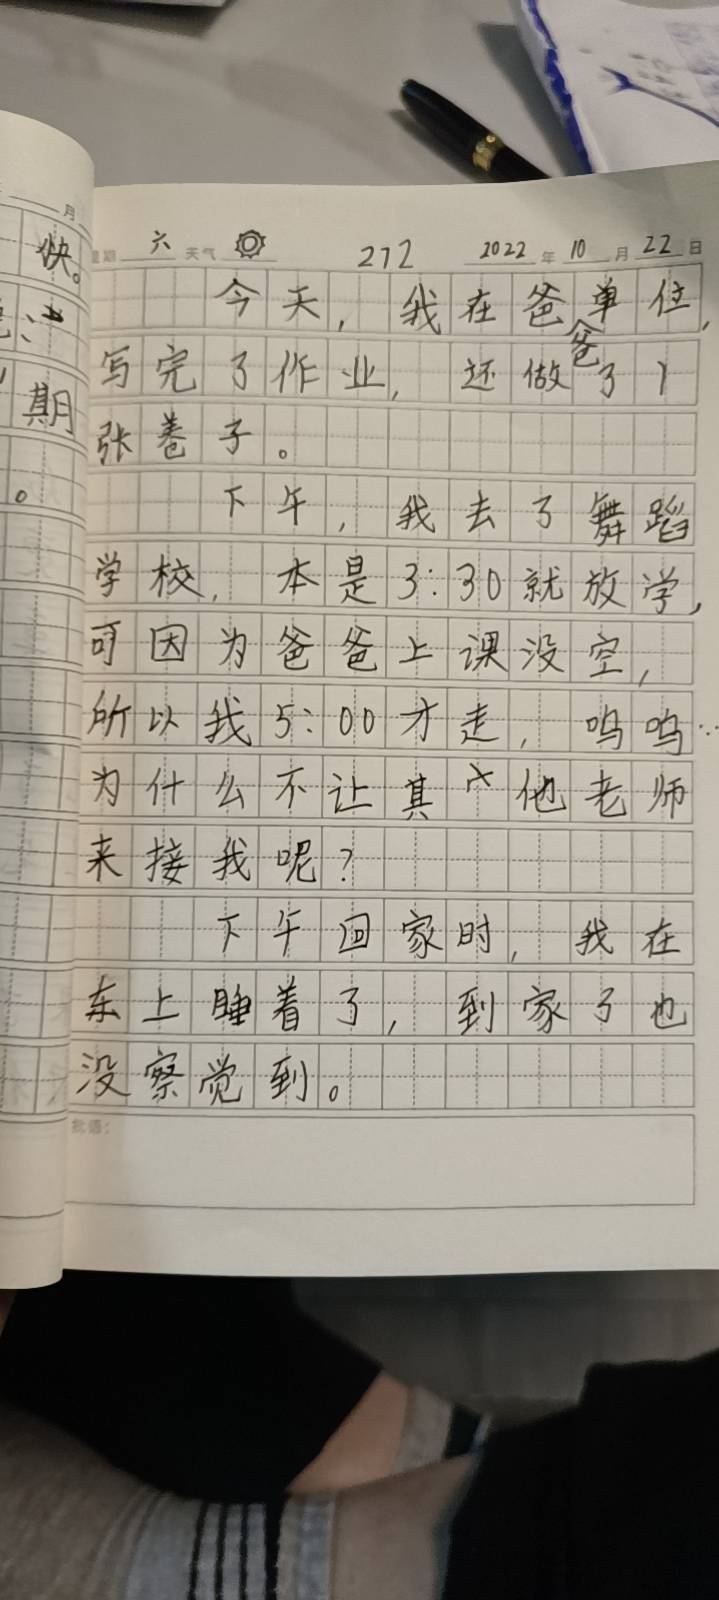 月
快。
期
。
星期 六 天气 272 2022 年 10 月 22 日
今天，我在爸爸单位，
写完了作业，还做了1
张卷子。
下午，我去了舞蹈
学校，本是3:30就放学，
可因为爸爸上课没空，
所以我5:00才走，呜呜…
为什么不让其他老师
来接我呢？
下午回家时，我在
车上睡着了，到家了也
没察觉到。
批语：